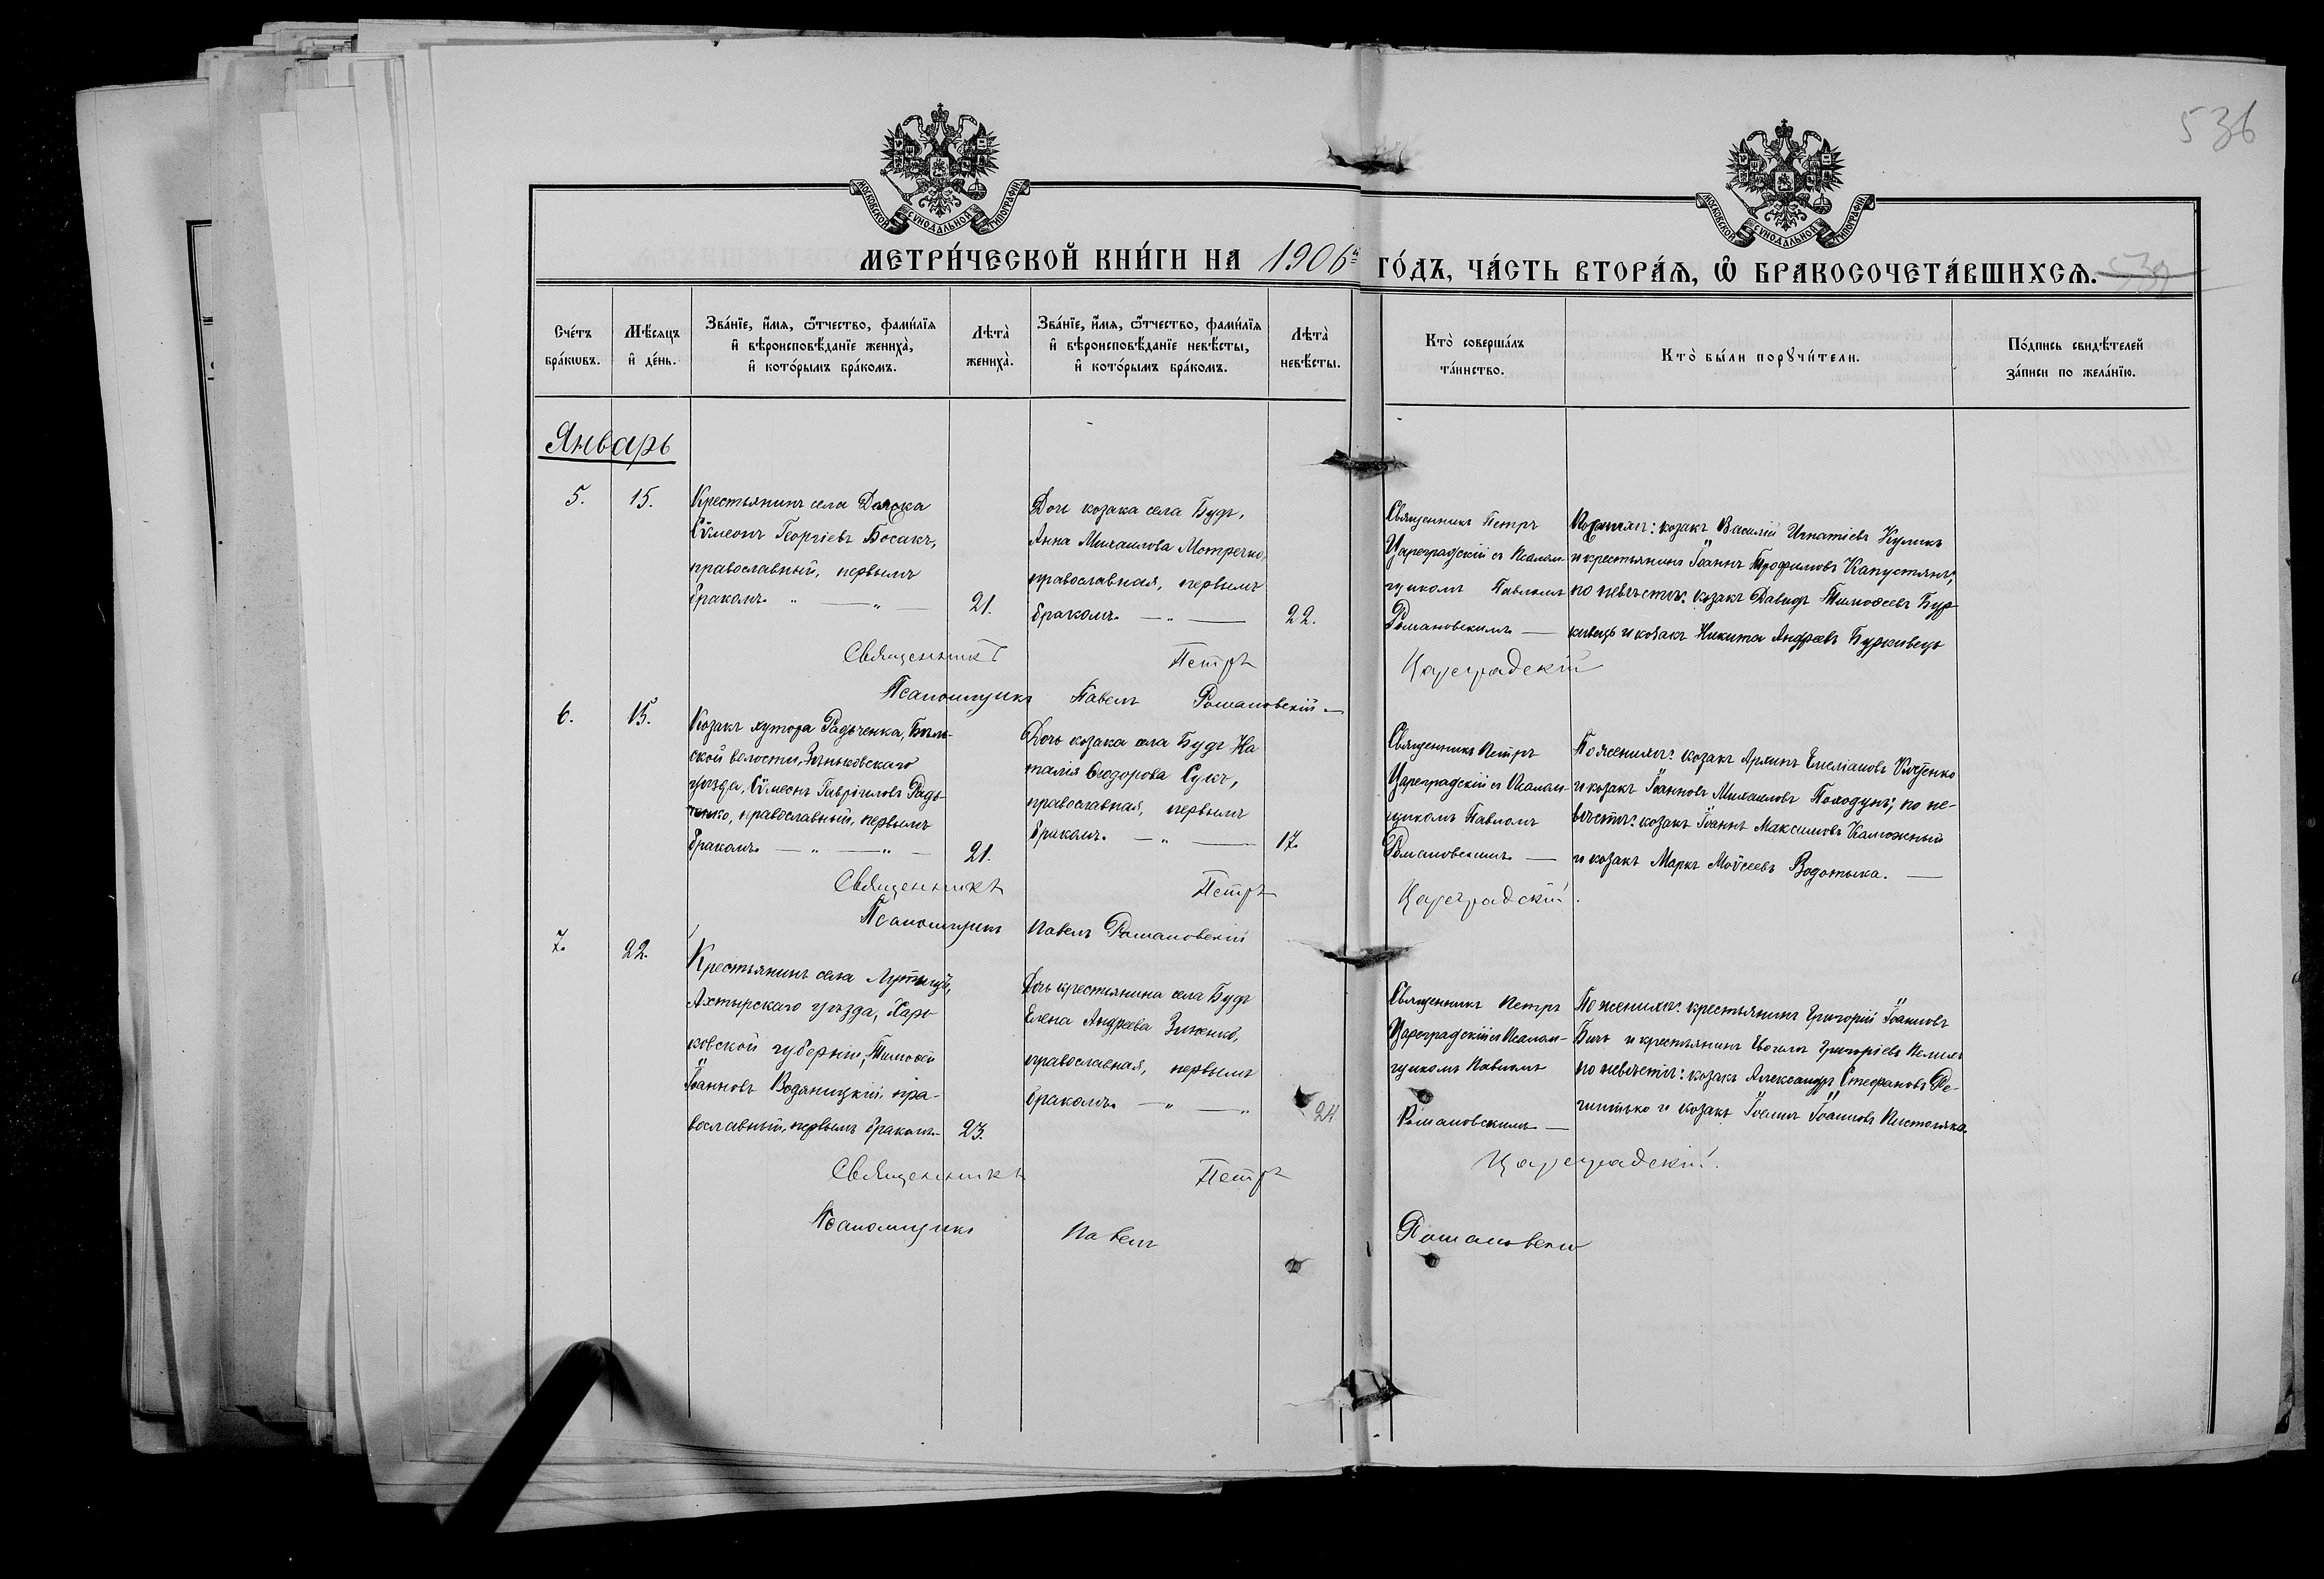 536
МОСКОВСКОЙ СУНОДАЛЬНОЙ ТИПОГРАФІИ
МОСКОВСКОЙ СУНОДАЛЬНОЙ ТИПОГРАФІИ
МЕТРИ́ЧЕСКОЙ КНИ́ГИ НА 1906й ГО́ДЪ, ЧА́СТЬ ВТОРА́Я, Ѽ БРАКОСОЧЕТА́ВШИХСЯ.
Сче́тъ
бра́кѡвъ.
Мѣ́сяцъ
и҆ де́нь.
Зва́нїе, и҆́мя, ѻ҆́тчество, фами́лїя
и҆ вѣроисповѣ́данїе жениха̀,
и҆ кото́рымъ бра́комъ.
Лѣта̀
жениха̀.
Зва́нїе, и҆́мя, ѻ҆́тчество, фами́лїя
и҆ вѣроисповѣ́данїе невѣ́сты,
и҆ кото́рымъ бра́комъ.
Лѣта̀
невѣ́сты.
Кто̀ соверша́лъ
та́инство.
Кто̀ бы́ли порꙋчи́тели.
По́дпись свидѣ́телей
за́писи по жела́нїю.
Январь
5.
15.
Крестьянинъ села
Сѵмеонъ Георгіевъ Босакъ,
православный, первымъ
бракомъ. „ — „ —
21.
Дочь козака села Будъ,
Анна Михаилова
православная, первымъ
бракомъ. — „ —
22.
Священникъ Петръ
Цареградскій съ Псалом-
щикомъ Павломъ
Романовскимъ —
козакъ Василій Игнатіевъ Куликъ
и крестьянинъ Іоаннъ Трофимовъ Капустянъ;
по невѣстѣ: козакъ Давидъ Тимоѳеевъ Бур-
кивецъ и козакъ Никита Андреевъ Буркивецъ
Священникъ Петръ Цареградскій
Псаломщикъ Павелъ Романовскій —
6.
15.
Козакъ хутора Радченка, Бѣль-
ской волости, Зѣньковскаго
уѣзда, Сѵмеонъ Гавріиловъ Рад-
ченко, православный, первымъ
бракомъ — „ — „ —
21.
Дочь козака села Будъ На
талія Ѳеодорова Сукъ,
православная, первымъ
бракомъ. — „ —
17.
Священникъ Петръ
Цареградскій съ Псалом-
щикомъ Павломъ
Романовскимъ —
По женихѣ: козакъ Емеліановъ
и козакъ Іоанновъ Михаиловъ Походунъ; по не-
вѣстѣ: козакъ Іоаннъ Максимовъ Калюжный
и козакъ Маркъ Моѵсеевъ Водотыка. —
Священникъ Петръ Цареградскій.
Псаломщикъ Павелъ Романовскій
7.
22.
Крестьянинъ села Лутищъ,
Ахтырскаго уѣзда, Харь-
ковской губерніи, Тимоѳей
Іоанновъ Водяницкій, пра-
вославный, первымъ бракомъ.
23.
Дочь крестьянина села Будъ
Елена Андреева Зиненко,
православная, первымъ
бракомъ. — „ — „
24
Священникъ Петръ
Цареградскій съ Псалом-
щикомъ Павломъ
Романовскимъ —
По женихѣ: крестьянинъ Григорій Іоанновъ
Бичъ и крестьянинъ Григоріевъ
по невѣстѣ: козакъ Александръ Стефановъ Де-
и козакъ Іоаннъ Іоанновъ
Священникъ Петръ Цареградскій.
Псаломщикъ Павелъ Романовскій